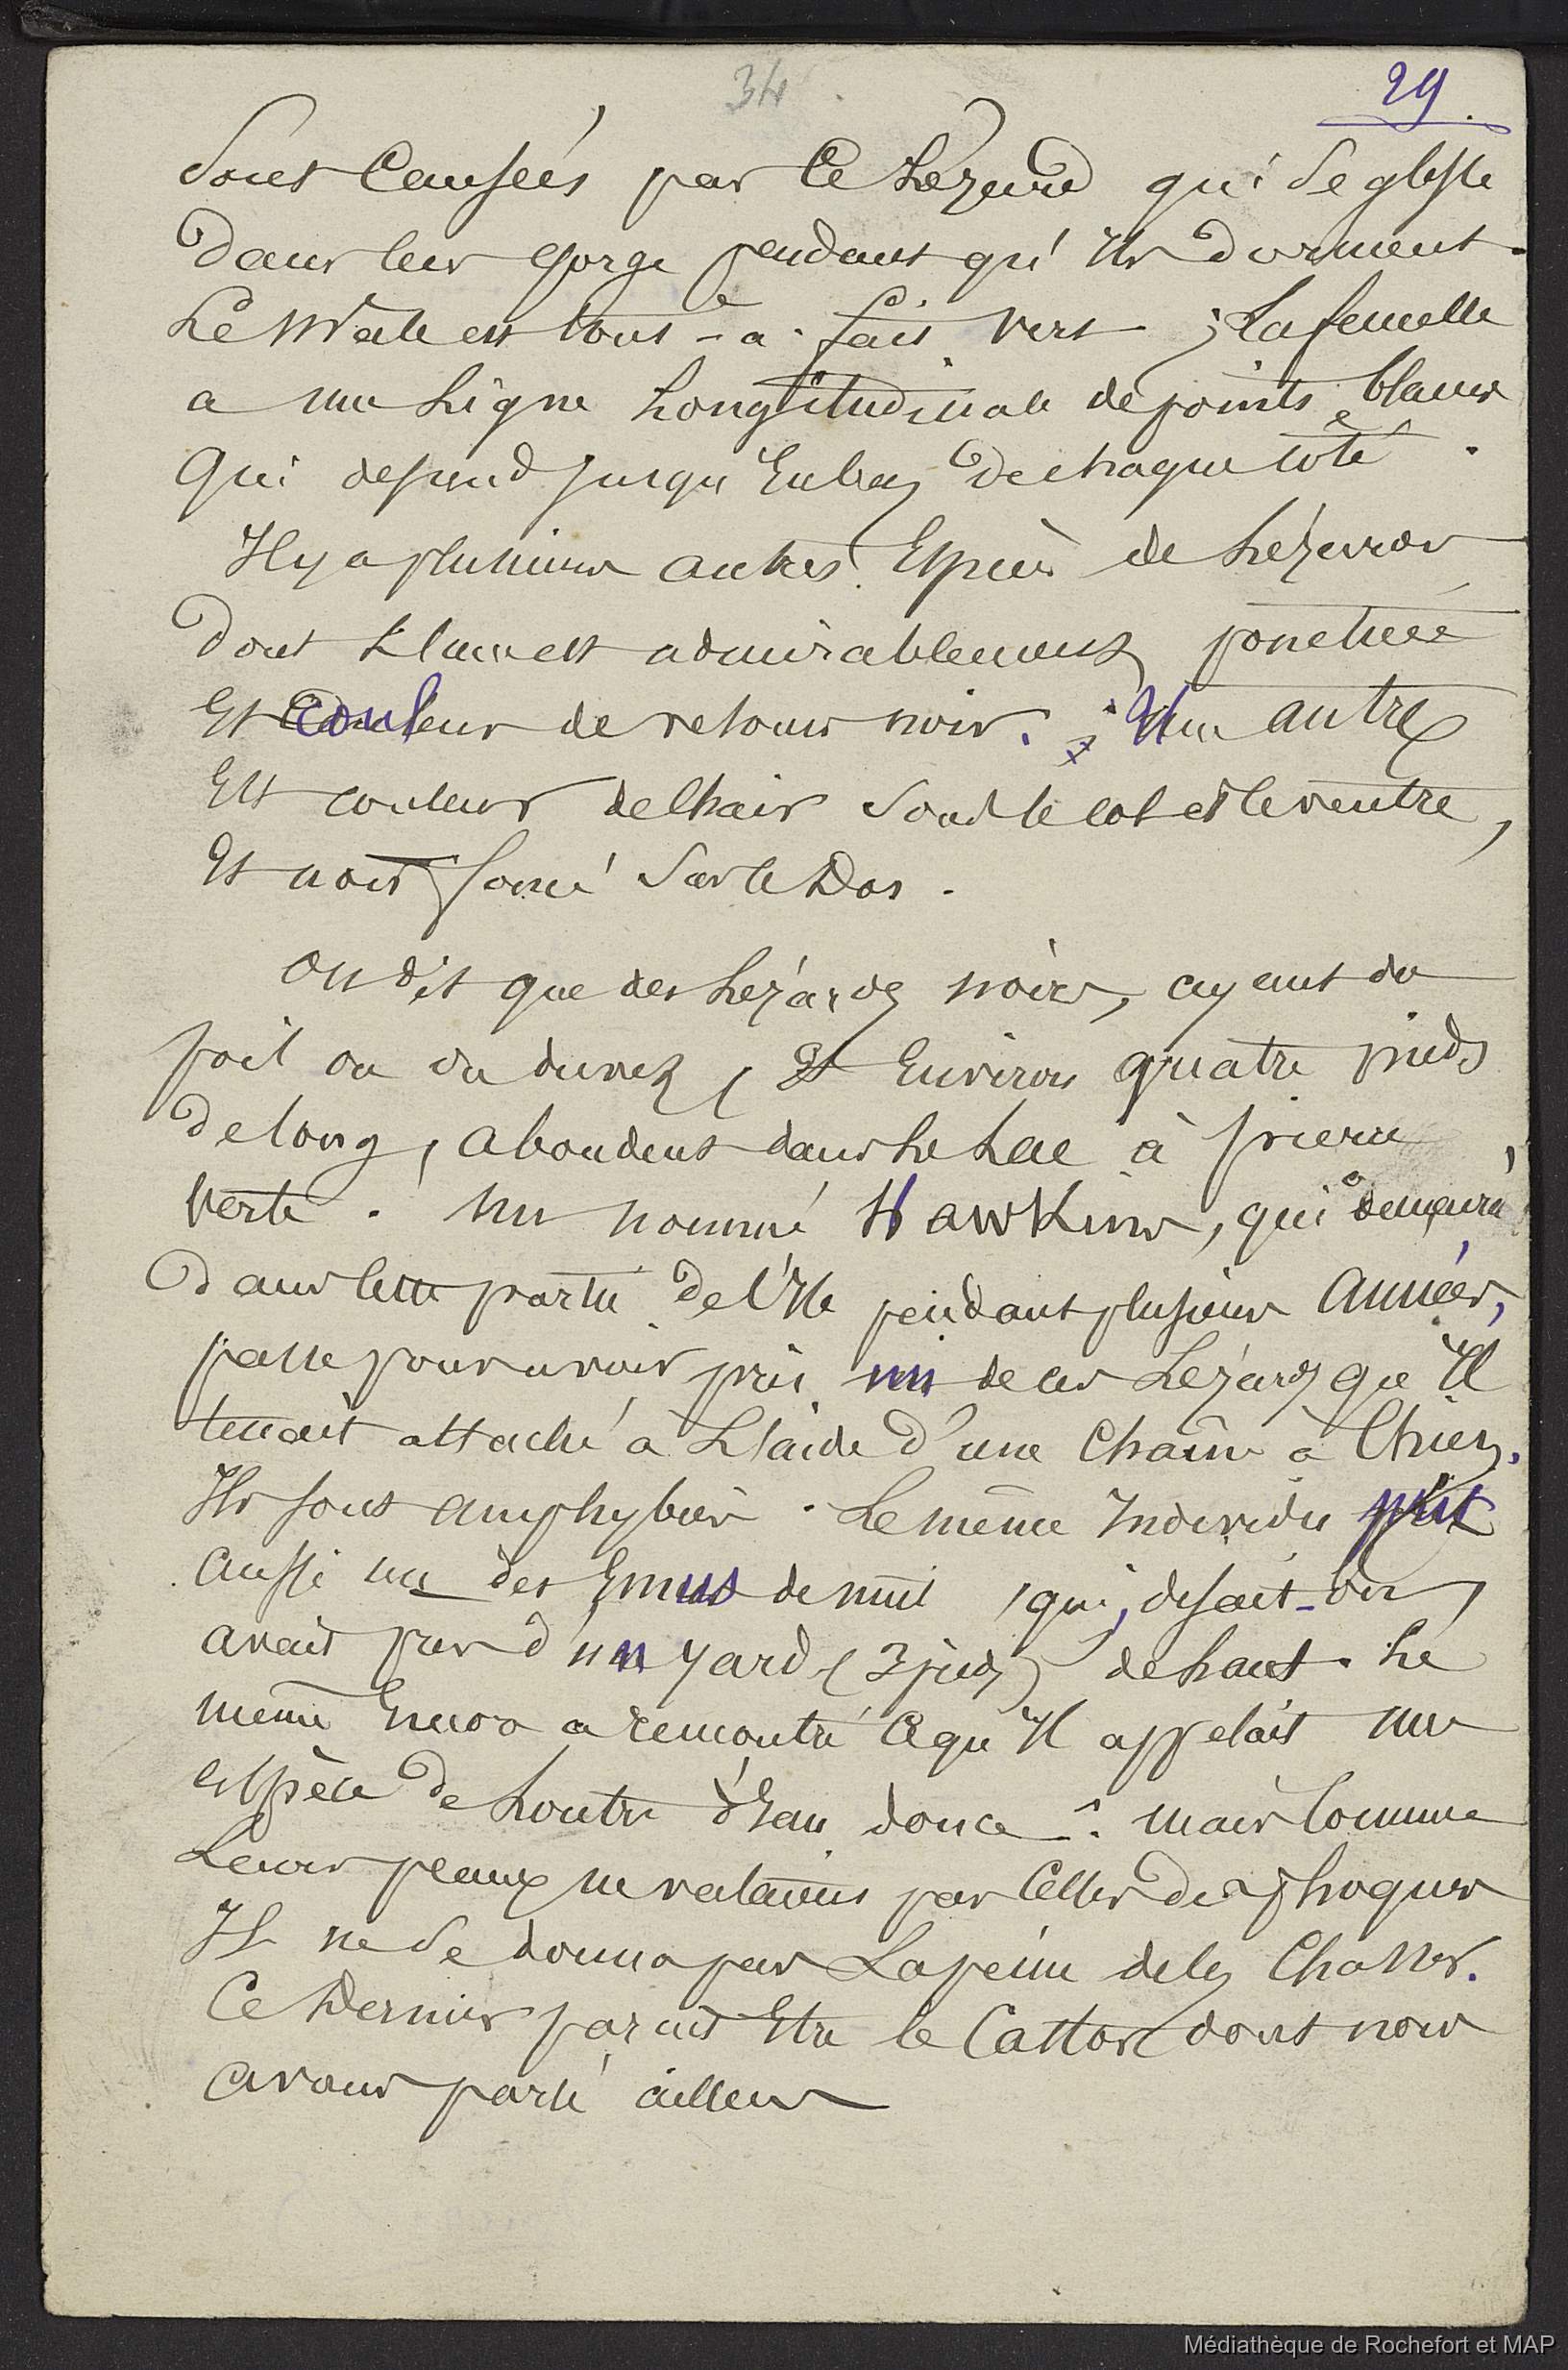 34
29.
Sont Causées par Ce Lézard qui Se glisse
Dans leur gorge pendant qu'Ils Dorment.
Le Mâle est tout-à-fait vert ; La femelle
a une Ligne Longitudinale de points blancs
Qui descend jusqu'En bas De chaque côté.
Il y a plusieurs autres Espèces de Lézards
Dont L'une est admirablement ponctuée
Et couleur de velours noir. ; Une autre
Est couleur de Chair Sous le col et le ventre,
Et noir foncé Sur le Dos.
On dit que des Lézards noirs, ayant du
poil ou du duvet, Et Environ quatre pieds
De long, abondent dans Le Lac à pierre
verte. Un nommé Hawkins, qui a demeuré
Dans Cette partie De l'Ile pendant plusieurs Années,
passe pour avoir pris un de ces Lézards qu'Il
tenait attaché à L'aide D'une Chaîne à Chien.
Ils sont amphybies. Le même Individu prit
aussi un des Emus de nuit, qui, disait-on,
avait près d'un yard (3 pieds) de haut. Le
même Enoro a rencontré Ce qu'Il appelait une
espèce De Loutre d'Eau douce. mais Comme
Leurs peaux ne valaient pas Celles des phoques
Il ne Se donna pas La peine de les Chasser.
Ce Dernier parait Etre le Castor dont nous
avons parlé ailleurs
Médiathèque de Rochefort et MAP